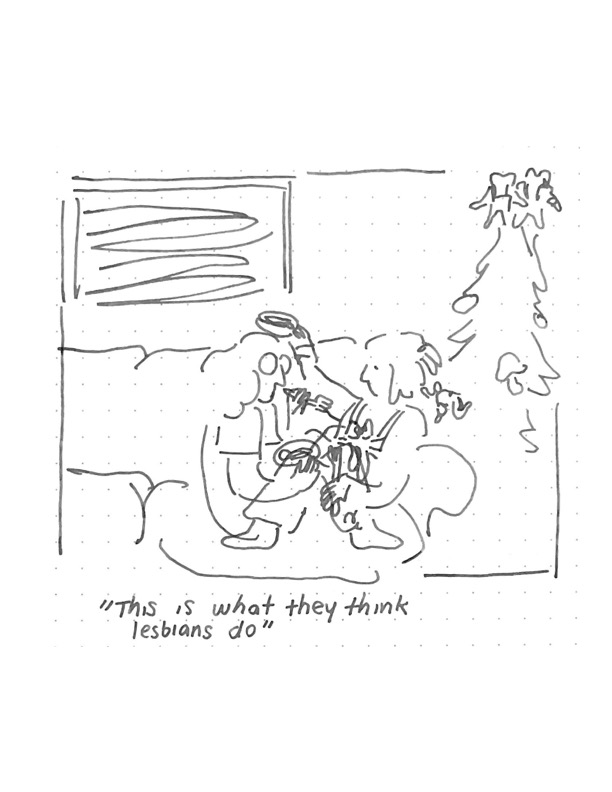 "This is what they think
lesbians do"